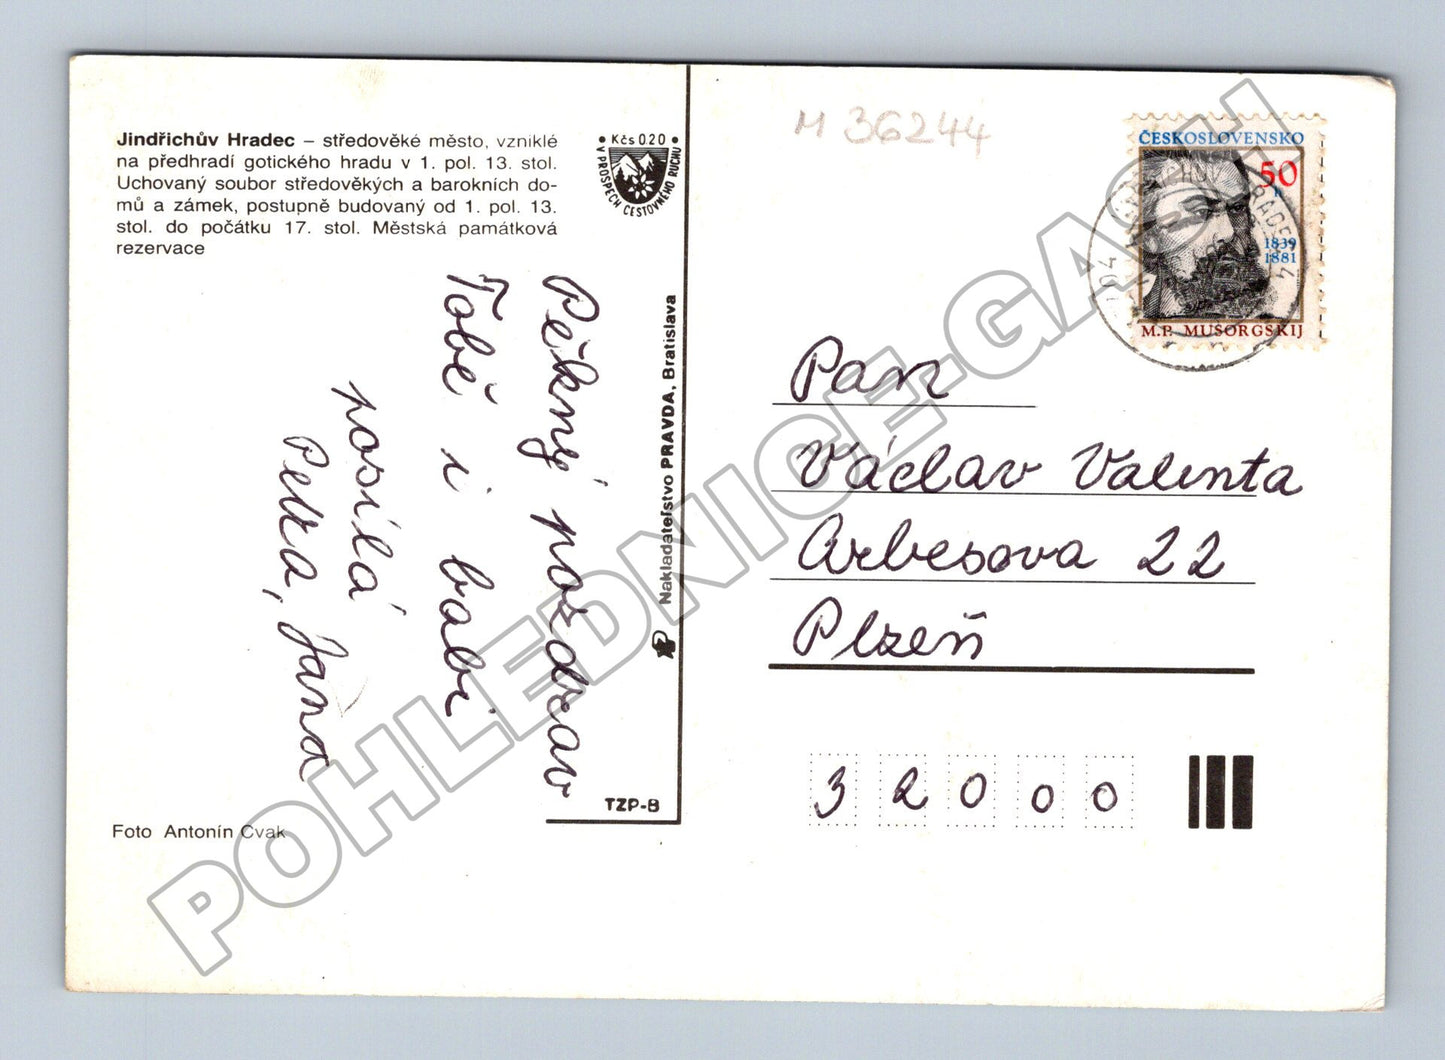 Jindřichův Hradec – středověké město, vzniklé
na předhradí gotického hradu v 1. pol. 13. stol.
Uchovaný soubor středověkých a barokních do-
mů a zámek, postupně budovaný od 1. pol. 13.
stol. do počátku 17. stol. Městská památková
rezervace
• Kčs 0.20 •
V PROSPĚCH CESTOVNÉHO RUCHU
M 36244
ČESKOSLOVENSKO
50
1839
1881
M.P. MUSORGSKIJ
Pěkný pozdrav
Tobě i babi
posílá
Petra, Jana
Nakladateľstvo PRAVDA, Bratislava
TZP-8
Foto Antonín Cvak
Pan
Václav Valenta
Arbesova 22
Plzeň
32000
POHLEDNICE-GASH